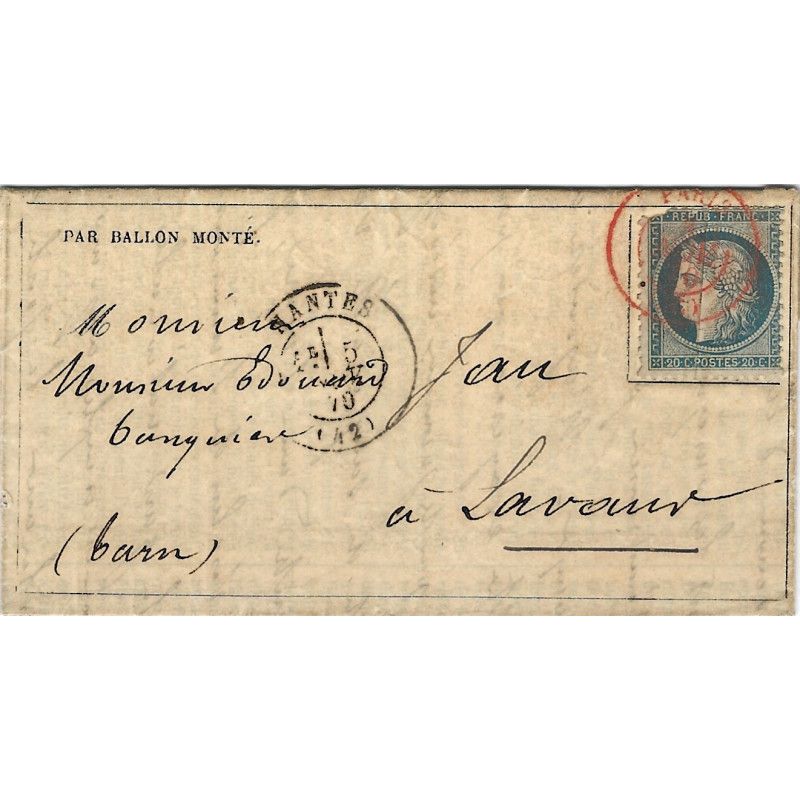 PARIS
REPUB. FRANC.
PAR BALLON MONTÉ.
NANTES
5
70
(42)
20·C·POSTES·20·C·
Monsieur
Monsieur Edouard Jau
banquier
à Lavaur
(Tarn)